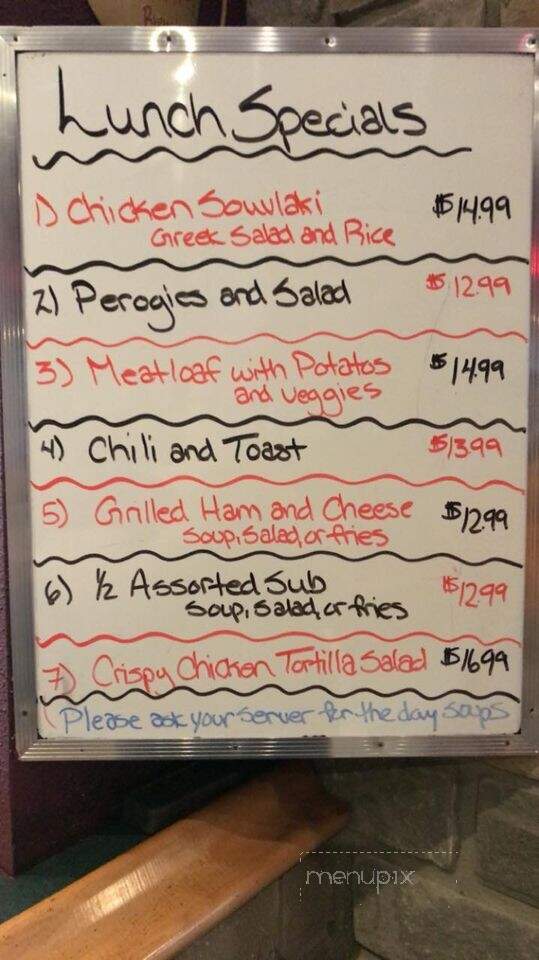 Lunch Specials
1) Chicken Souvlaki $14.99
Greek Salad and Rice
2) Perogies and Salad $12.99
3) Meatloaf with Potatos $14.99
and veggies
4) Chili and Toast $13.99
5) Grilled Ham and Cheese $12.99
Soup, Salad, or fries
6) ½ Assorted Sub $12.99
Soup, Salad, or fries
7) Crispy Chicken Tortilla Salad $16.99
Please ask your server for the day soups
menupix